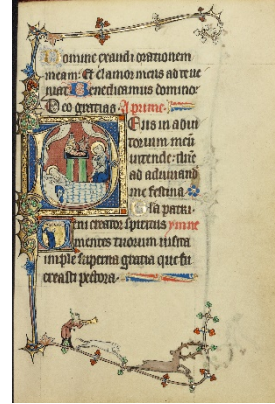 Domine exaudi orationem
meam: Et clamor meus ad te ue
niat Benedicamus domino:
Deo gratias. A prime.
Deus in adiu
torium meū
intende: dñe
ad adiuuand
me festina
Gl'a patri.
Veni creator spiritus ymne
mentes tuorum visita
imple superna gratia que tu
creasti pectora.